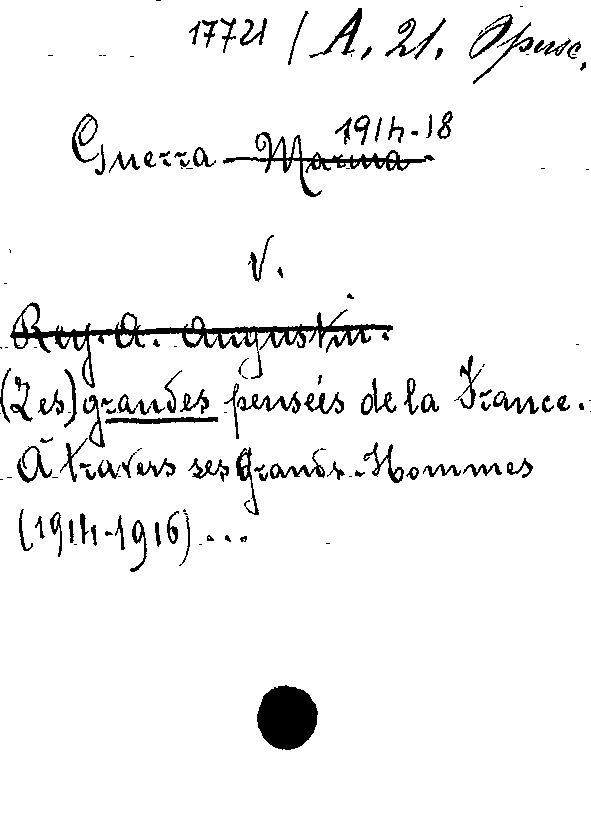 17721 / A. 21. Opusc.
Guerra - Marina 1914-18
V.
Rey. A. Augustin.
(Les) grandes pensées de la France.
À travers ses Grands-Hommes
(1914-1916)...